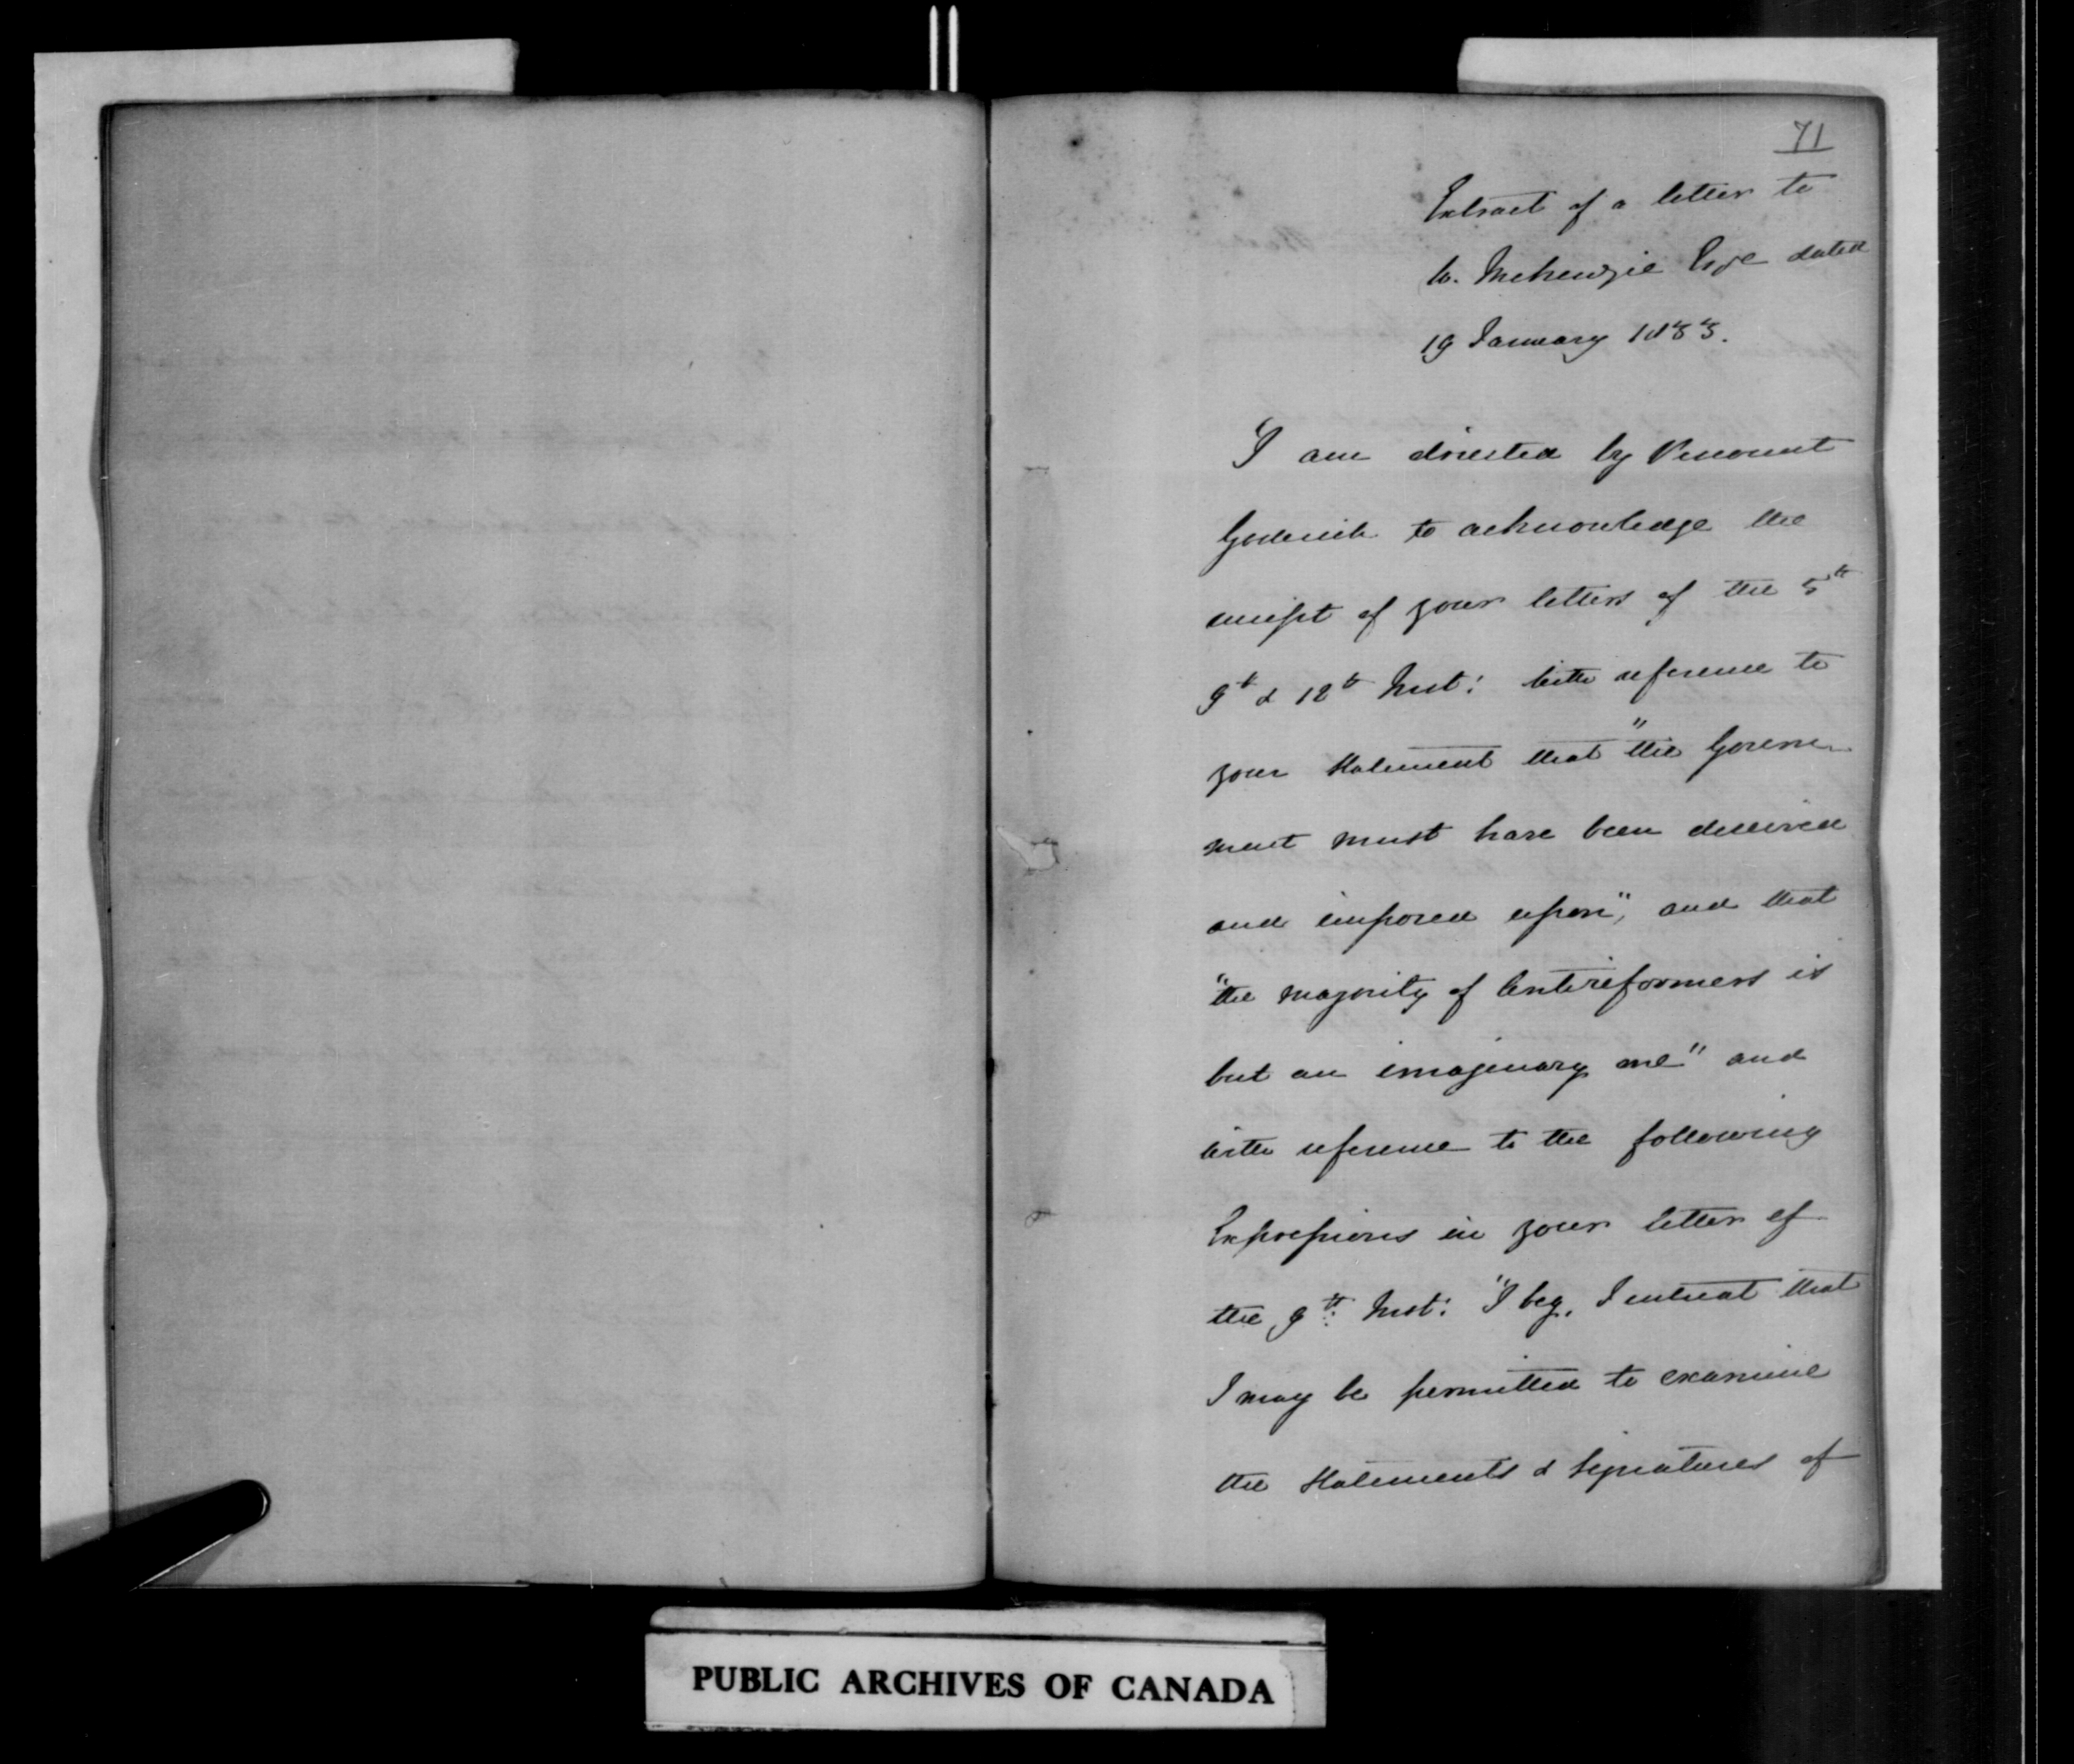 71
Extract of a letter to
W. McKenzie Esqe dated
19 January 1833.
"I am directed by Viscount
Goderich to acknowledge the
receipt of your letters of the 5th
9th & 12th Inst: With reference to
your statement that "the Govern-
ment must have been deceived
and imposed upon", and that
"the majority of Antireformers is
but an imaginary one" and
with reference to the following
Expressions in your letter of
the 9th: Inst: "I beg, I entreat that
I may be permitted to examine
the Statements & Signatures of
PUBLIC ARCHIVES OF CANADA